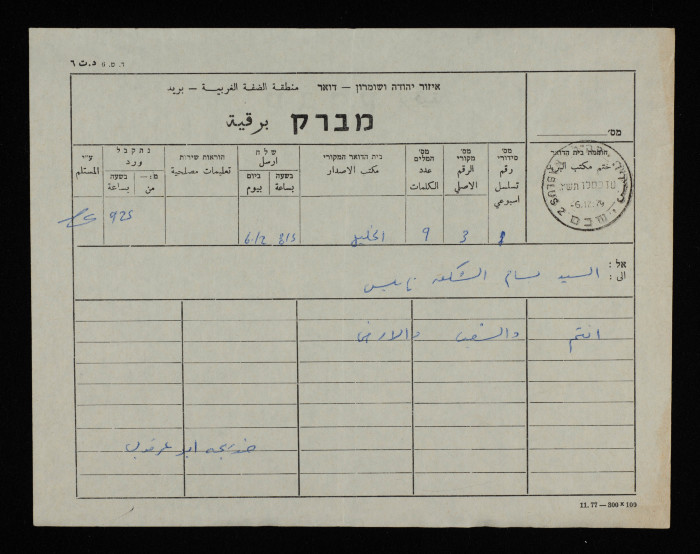 ד. ס. 6 د.ت ٦
איזור יהודה ושומרון — דואר منطقة الضفة الغربية — بريد
מברק برقية
מס׳
ע״י المستلم
נתקבל ورد
מ:— من
בשעה بساعة
הוראות שירות تعليمات مصلحية
שלח ارسل
ביום بيوم
בשעה بساعة
בית הדואר המקורי مكتب الاصدار
מס׳ המלים عدد الكلمات
מס׳ מקורי الرقم الاصلي
מס׳ סידורי رقم تسلسل اسبوعي
חותמת בית הדואר ختم مكتب البريد
NABLUS 2 שכם
-6.12.79
925 6/2 815 الخليل 9 3 8
אל: الى: السيد بسام الشكعة نابلس
انتم والشعب والارض
خديجة ابو عرقوب
11.77 — 300 × 100